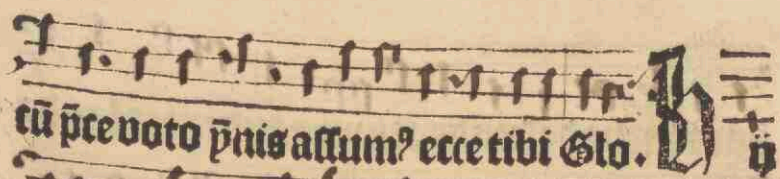 cū p̄ce voto ȳnis assumꝰ ecce tibi Glo. H ij